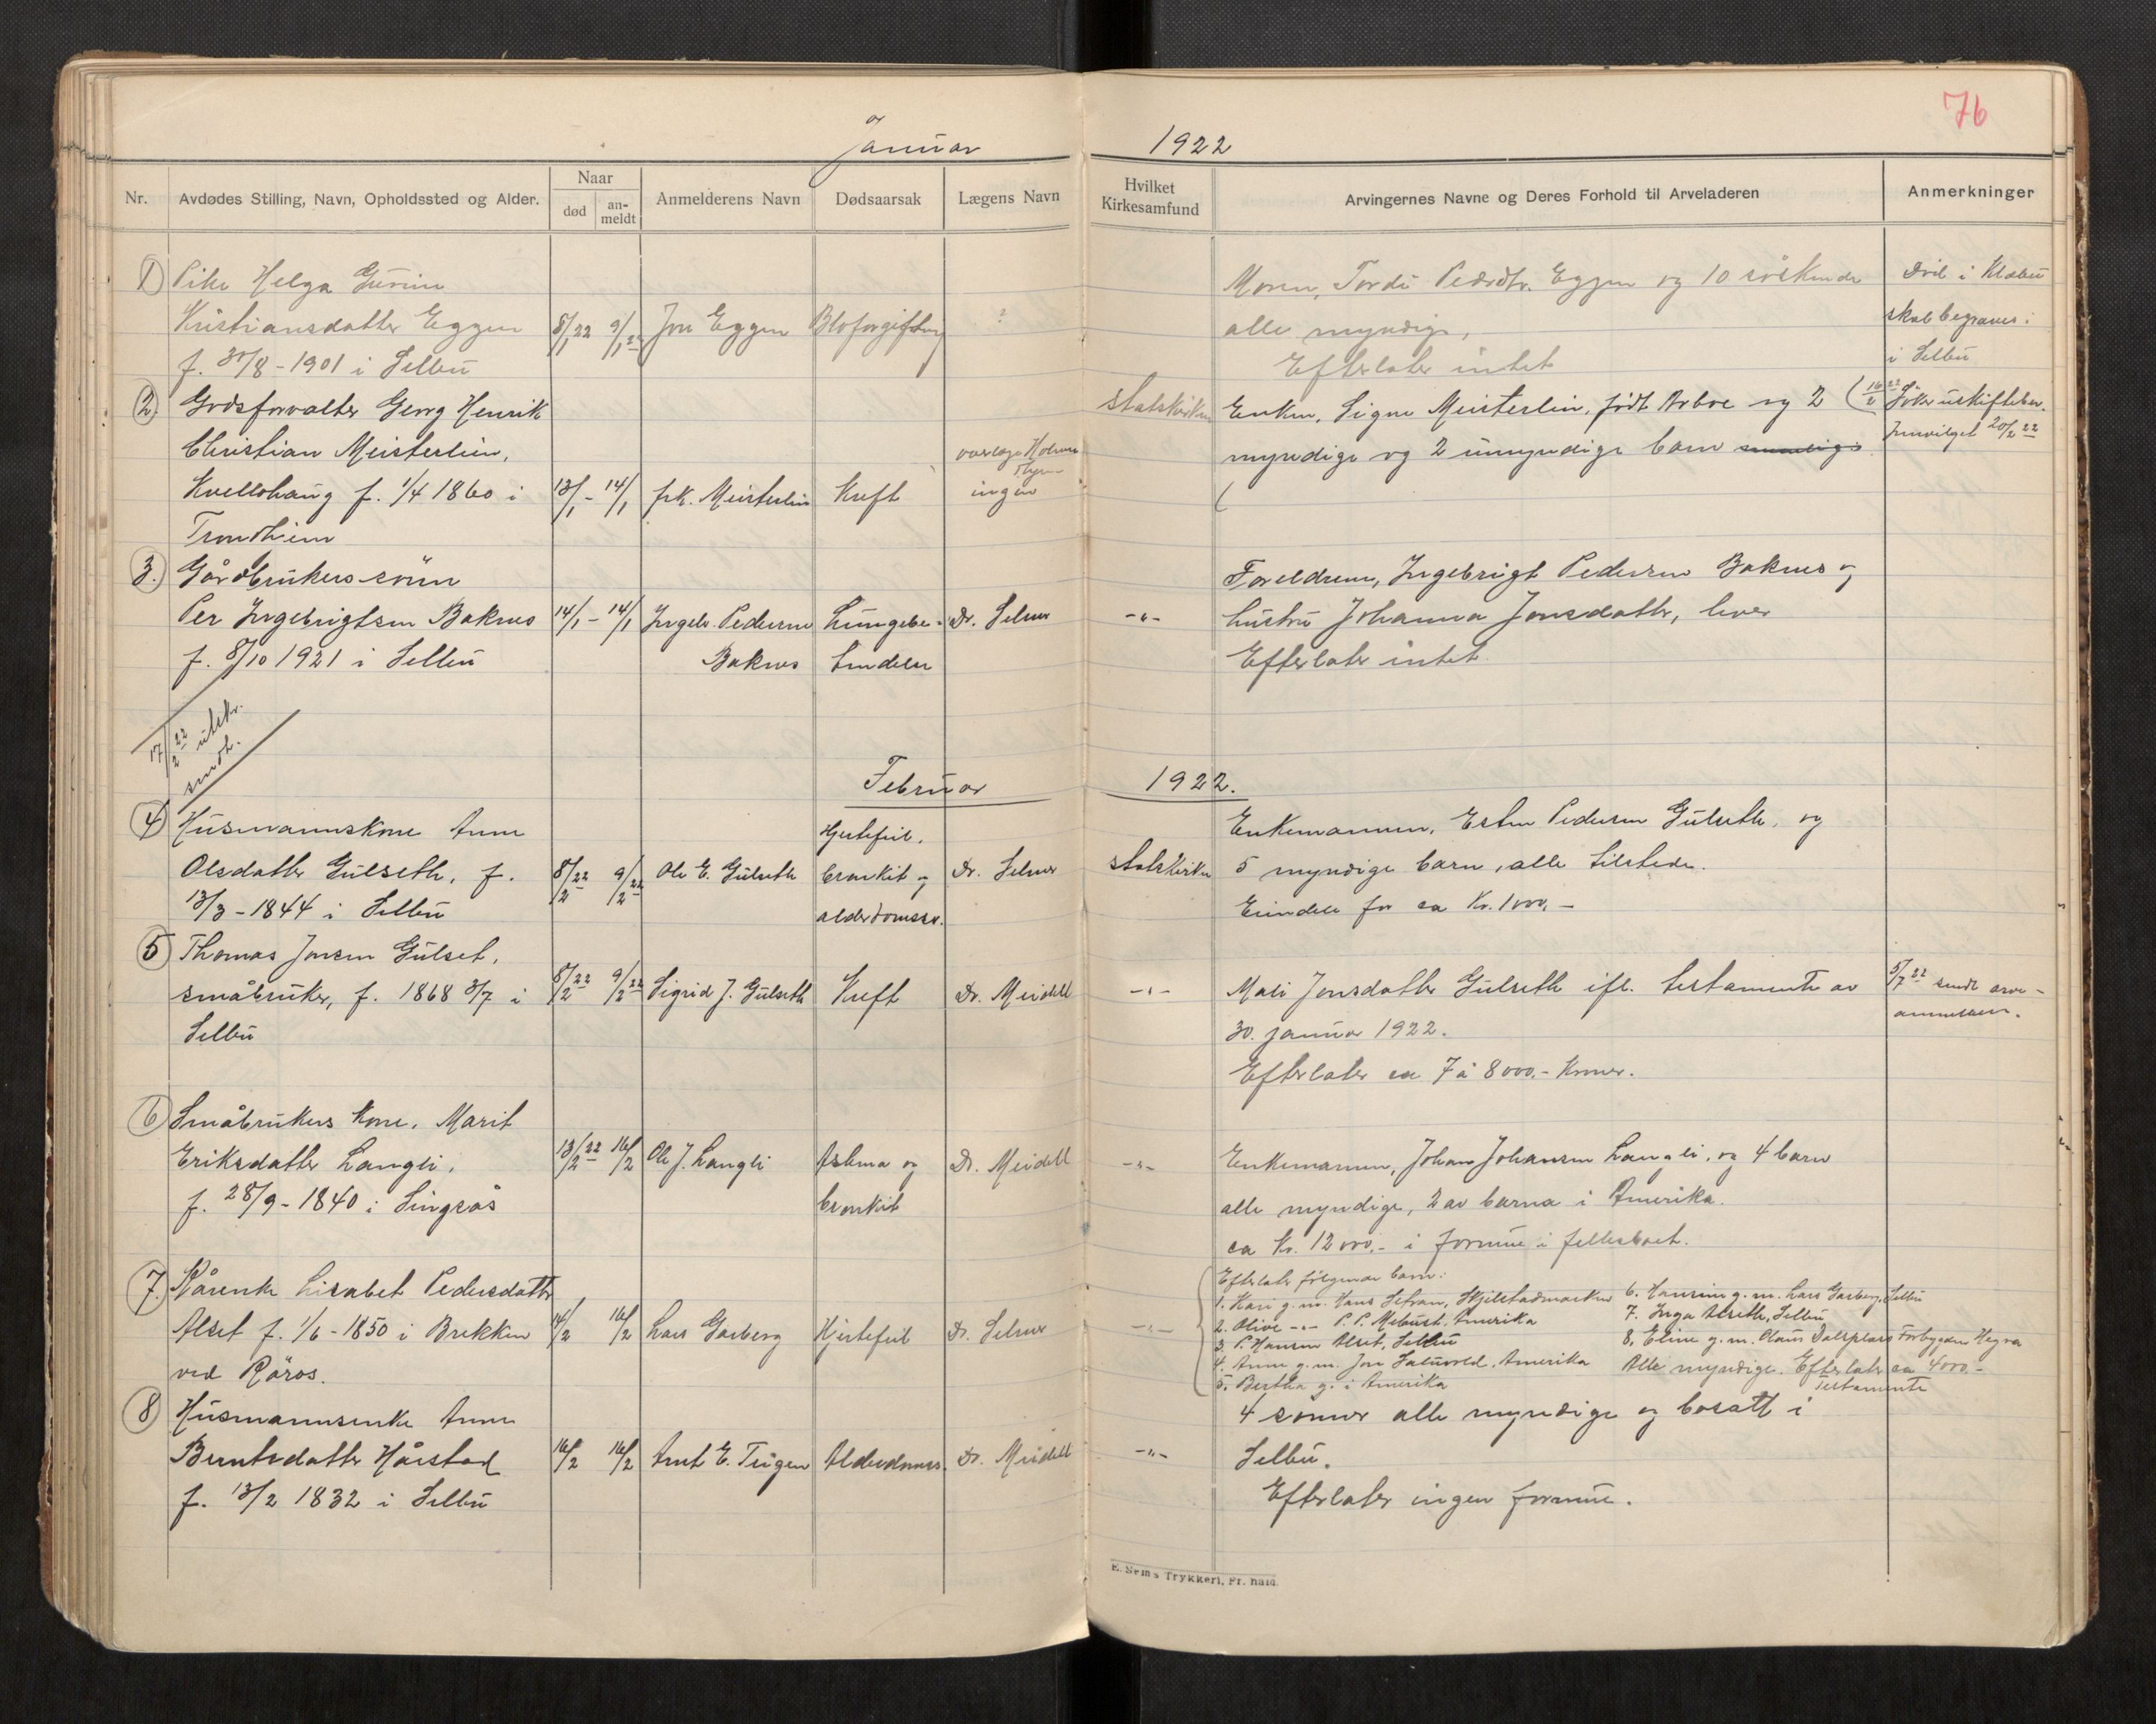 76
Januar 1922
Nr. Avdødes Stilling, Navn, Opholdssted og Alder. Naar død an-meldt Anmelderens Navn Dødsaarsak Lægens Navn Hvilket Kirkesamfund Arvingernes Navne og Deres Forhold til Arveladeren Anmerkninger
1) Pike Helga Gurine Moren, Tordi Pedrdtr. Eggen og 10 søskende Död i Klæbu
Kristiansdatter Eggen 8/1 22 9/1 22 Jon Eggen Bloforgiftning ? alle myndige, skal begraves i
f. 30/8 - 1901 i Selbu Efterlater intet i Selbu
2) Godsforvalter Georg Henrik statskirken Enken, Signe Meisterlin, født Arboe og 2 (16/2 22 Søker uskiftebev.
Christian Meisterlin, myndige og 2 umyndige barn Innvilget 20/2 22
Kvellohaug f. 1/4 1860 i 13/1 - 14/1 frk. Meisterlin Kreft ingen
Trondhjem
3.) Gårdbrukers sönn Foreldrene, Ingebrigt Pedersen Baknes og
Per Ingebrigtsen Baknes 14/1 - 14/1 Ingebr. Pedersen Lungebe- Dr. Selmer -"- hustru Johanna Jonsdatter, lever
f. 8/10 1921 i Selbu Baknes tendelse Efterlater intet.
17/2 22 utskr.
sendt.
Februar 1922.
4) Husmannskone Anne Hjertefeil, Enkemannen, Esten Pedersen Gulseth, og
Olsdatter Gulseth, f. 8/2 22 9/2 22 Ole E. Gulseth bronkit og Dr. Selmer statskirken 5 myndige barn, alle tilstede.
13/3 - 1844 i Selbu alderdomssv. Eiendele for ca Kr. 1000,-
5) Thomas Jonsen Gulset,
småbruker, f. 1868 3/7 i 8/2 22 9/2 22 Sigrid J. Gulseth Kreft Dr. Meidell -"- Mali Jonsdatter Gulseth ifl. testamente av 5/7 22 sendt arve-
Selbu 30. januar 1922. anmelden.
Efterlater ca 7 à 8000,- Kroner.
6) Småbrukers kone, Marit
Eriksdatter Langli, 13/2 22 16/2 Ole J. Langli Astma og Dr. Meidell -"- Enkemannen, Johan Johansen Langli, og 4 barn
f. 28/9 - 1840 i Singsås bronkit alle myndige, 2 av barna i Amerika.
ca Kr. 12000,- i formue i fellesboet.
7.) Kårenke Lisabet Pedersdatter Efterlater følgende barn:
Alset f. 1/6 - 1850 i Brekken 14/2 16/2 Lars Garberg Hjertefeil Dr. Selmer -"-
ved Röros.
1. Kari g. m. Hans Sefran, Skjelstadmarken
2. Olive -"- P. P. Mebust, Amerika
3. P. Hansen Alset, Selbu
4. Anne g. m. Jon , Amerika
5. Bertha g. i Amerika
6. Hansine g. m. Lars Garberg, Selbu
7. Inga Alseth, Selbu
8. Eline g. m. Olaus Dalsplass Forbygden Hegra
Alle myndige. Efterlater ca 4000,-
Testamente
8) Husmannsenke Anne 4 sönner alle myndige og bosatt i
Berntsdatter Hårstad 16/2 16/2 Arnt E. Teigen Alderdomss. Dr. Meidell -"- Selbu.
f. 13/2 1832 i Selbu Efterlater ingen formue.
E. Sems Trykkeri, Fr.hald.